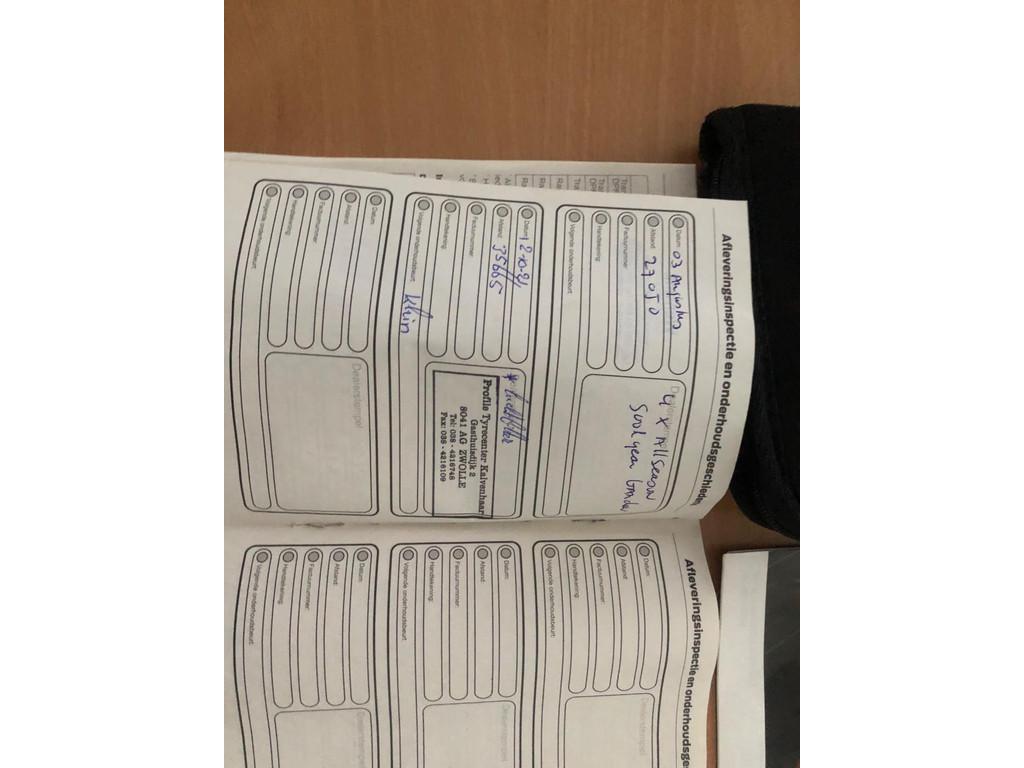 Afleveringsinspectie en onderhoudsgeschieden
Datum 03 Augustus
Afstand 27050
Factuurnummer:
Handtekening:
Volgende onderhoudsbeurt:
4 x All Season
Goodyear
Datum 12-10-21
Afstand 35665
Factuurnummer:
Handtekening:
Volgende onderhoudsbeurt:
* luchtfilter
Profile Tyrecenter Kalvenhaar
Gasthuisdijk 2
8041 AG ZWOLLE
Tel: 038 - 4216748
Fax: 038 - 4216109
Datum:
Afstand:
Factuurnummer:
Handtekening:
Volgende onderhoudsbeurt:
Dealerstempel
Afleveringsinspectie en onderhoudsges
Datum:
Afstand:
Factuurnummer:
Handtekening:
Volgende onderhoudsbeurt:
Dealerstempel
Datum:
Afstand:
Factuurnummer:
Handtekening:
Volgende onderhoudsbeurt:
Dealerstempel
Datum:
Afstand:
Factuurnummer:
Handtekening:
Volgende onderhoudsbeurt:
Dealerstempel